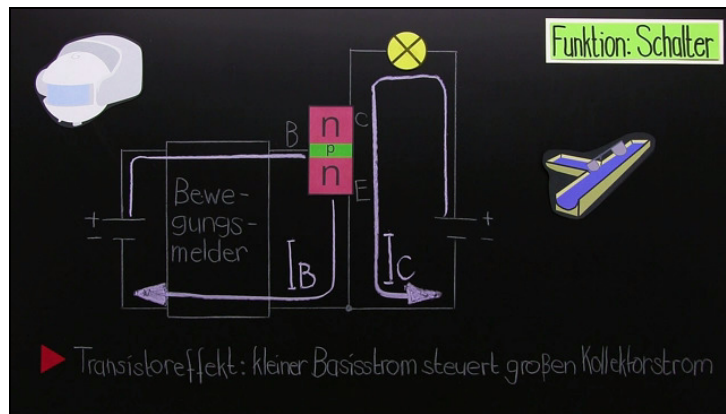 Funktion: Schalter
B
n
p
n
C
E
+
−
Bewe-
gungs-
melder
I_B
I_C
+
−
Transistoreffekt: kleiner Basisstrom steuert großen Kollektorstrom